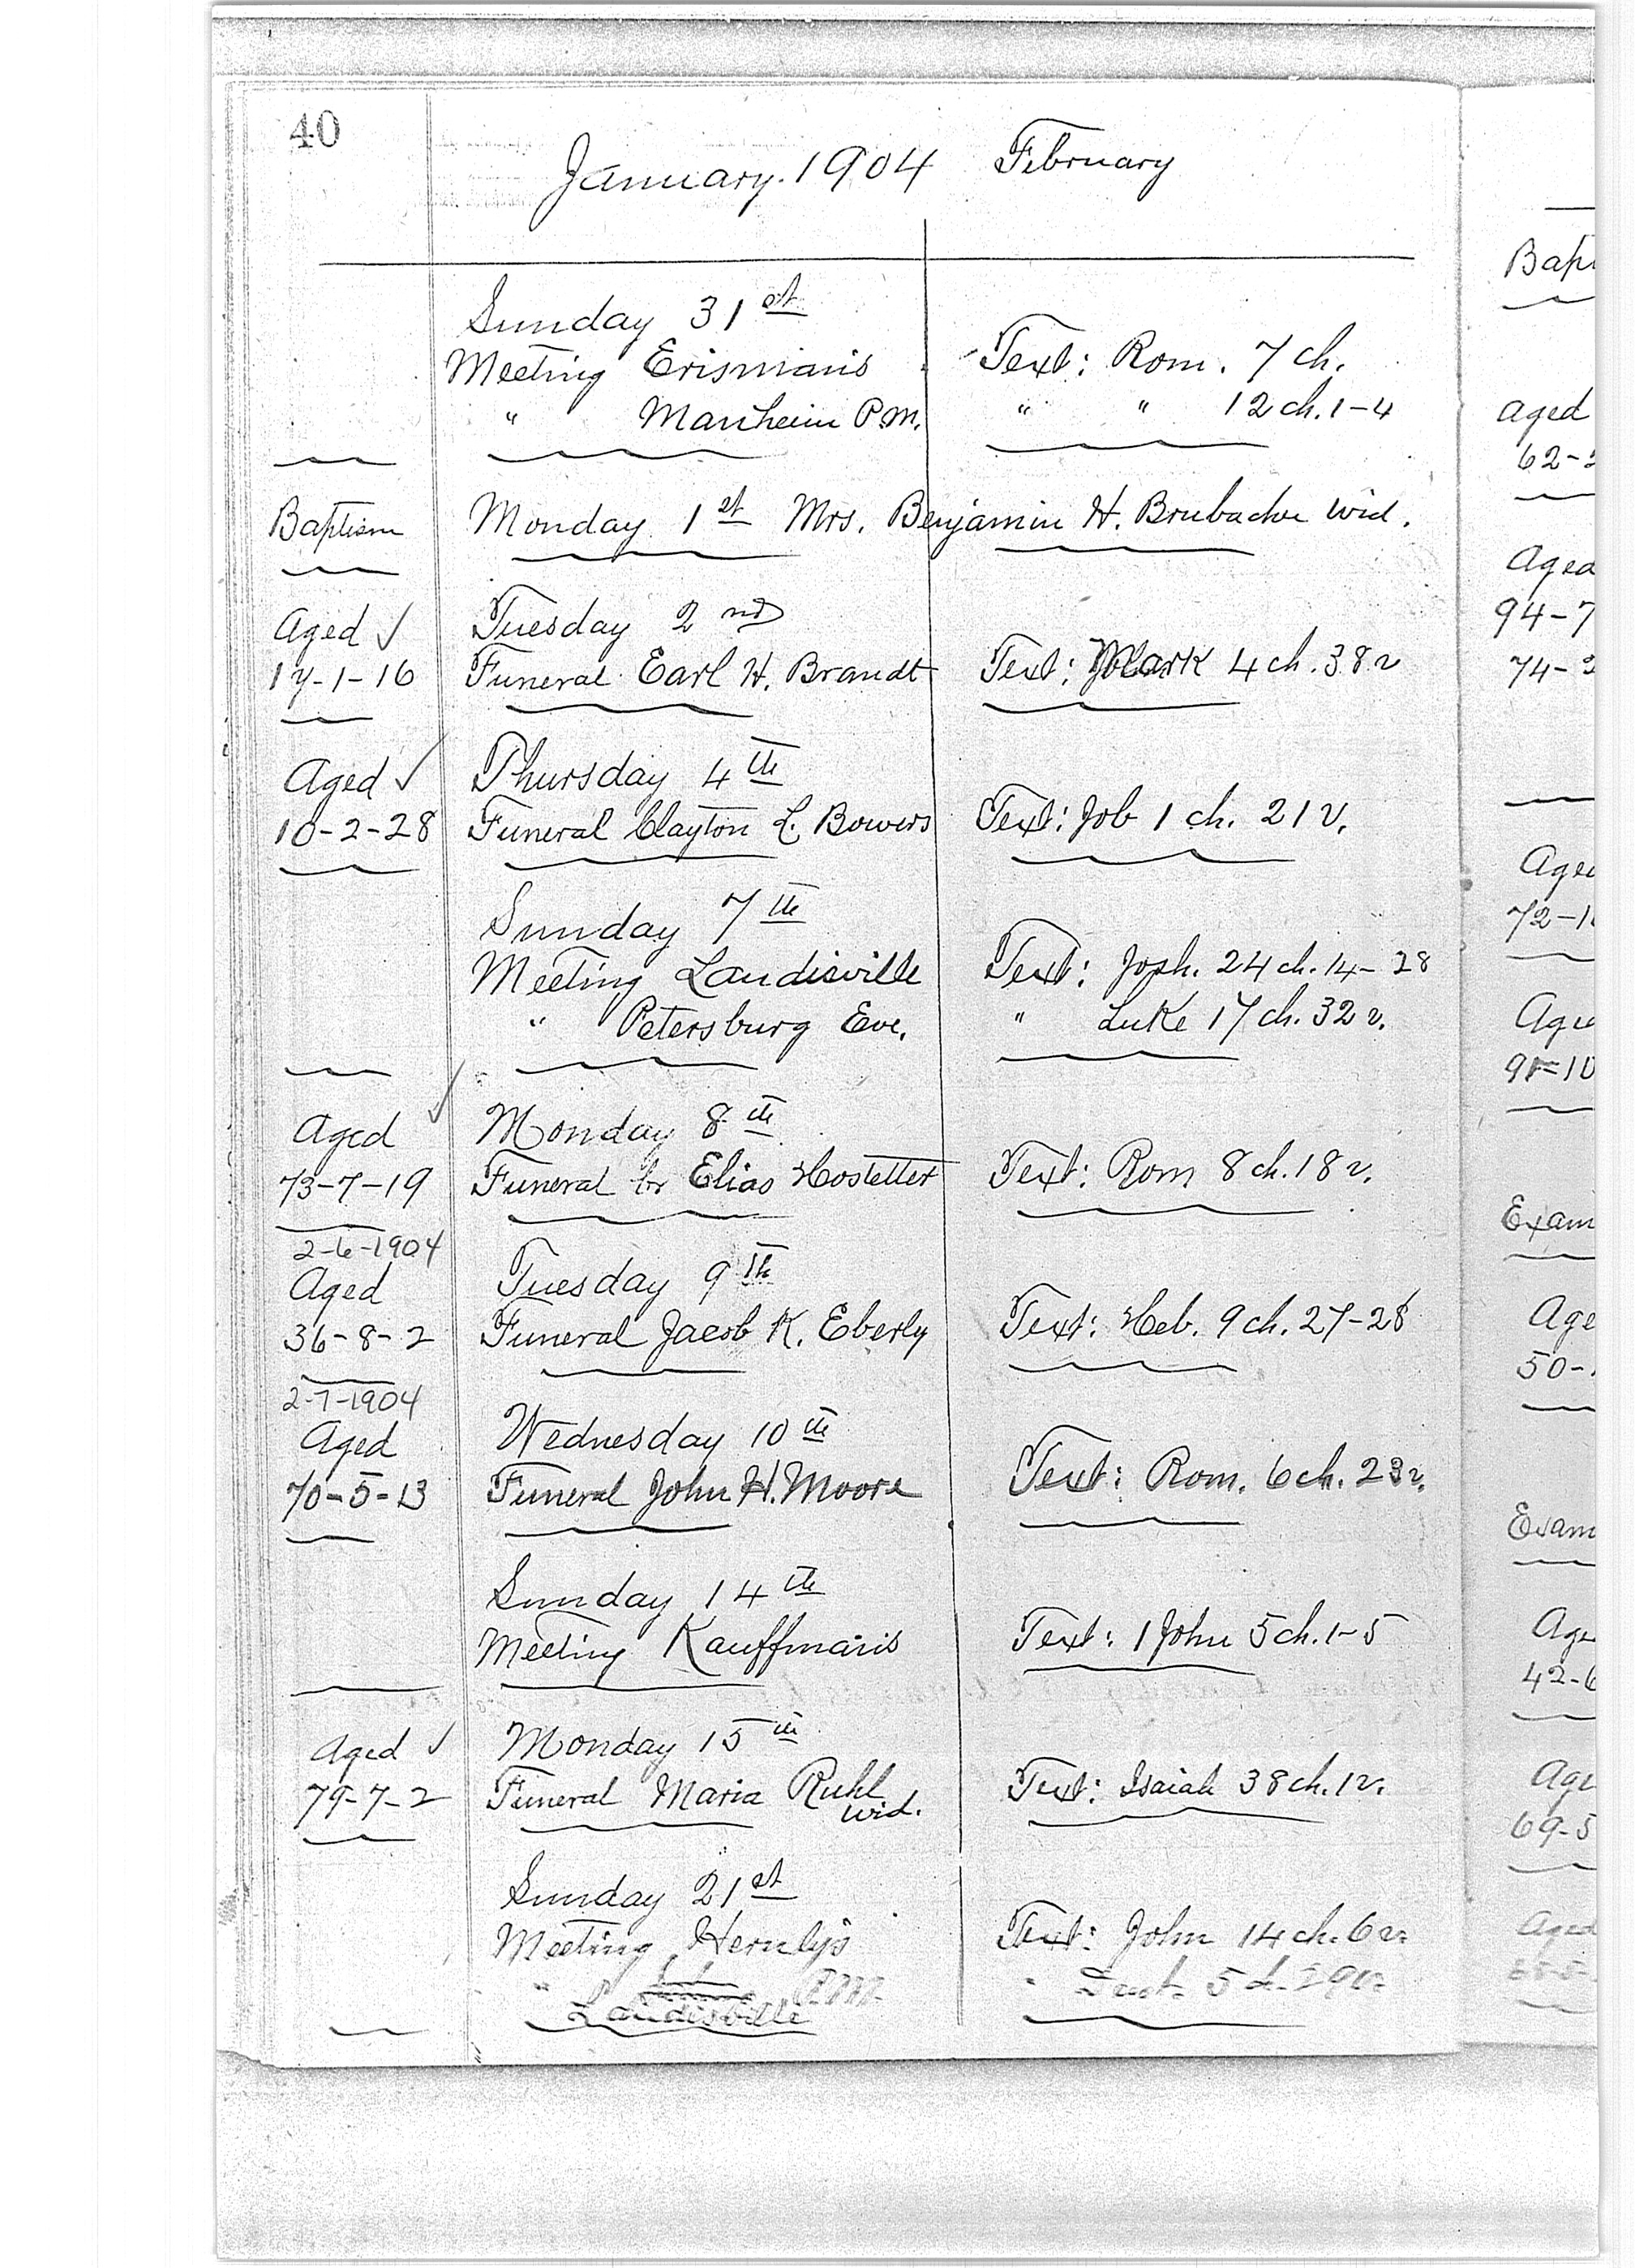 40
January. 1904 February
Sunday 31st
Meeting Erisman's Text: Rom. 7 ch.
" Manheim P.M. " " 12 ch. 1-4
Baptism Monday 1st Mrs. Benjamin H. Brubacher Wid.
Aged ✓ Tuesday 2nd
17-1-16 Funeral Earl H. Brandt Text: Mark 4 ch. 38 v
Aged ✓ Thursday 4th
10-2-28 Funeral Clayton L. Bowers Text: Job 1 ch. 21 v.
Sunday 7th
Meeting Landisville Text: Josh. 24 ch. 14-28
" Petersburg Eve. " Luke 17 ch. 32 v.
Aged ✓ Monday 8th
73-7-19 Funeral br Elias Hostetter Text: Rom 8 ch. 18 v.
2-6-1904
Aged Tuesday 9th
36-8-2 Funeral Jacob K. Eberly Text: Heb. 9 ch. 27-28
2-7-1904
Aged Wednesday 10th
70-5-13 Funeral John H. Moore Text: Rom. 6 ch. 23 v.
Sunday 14th
Meeting Kauffman's Text: 1 John 5 ch. 1-5
Aged ✓ Monday 15th
79-7-2 Funeral Maria Ruhl Text: Isaiah 38 ch. 1 v.
Wid.
Sunday 21st
Meeting Hernly's Text: John 14 ch. 6 v.
" P.M. " Deut. 5 ch. 29 v.
Landisville
Bap
Aged
62-
Aged
94-7
74-
Age
72-1
Age
91-10
Exam
Age
50-
Exam
Age
42-6
Age
69-5
Aged